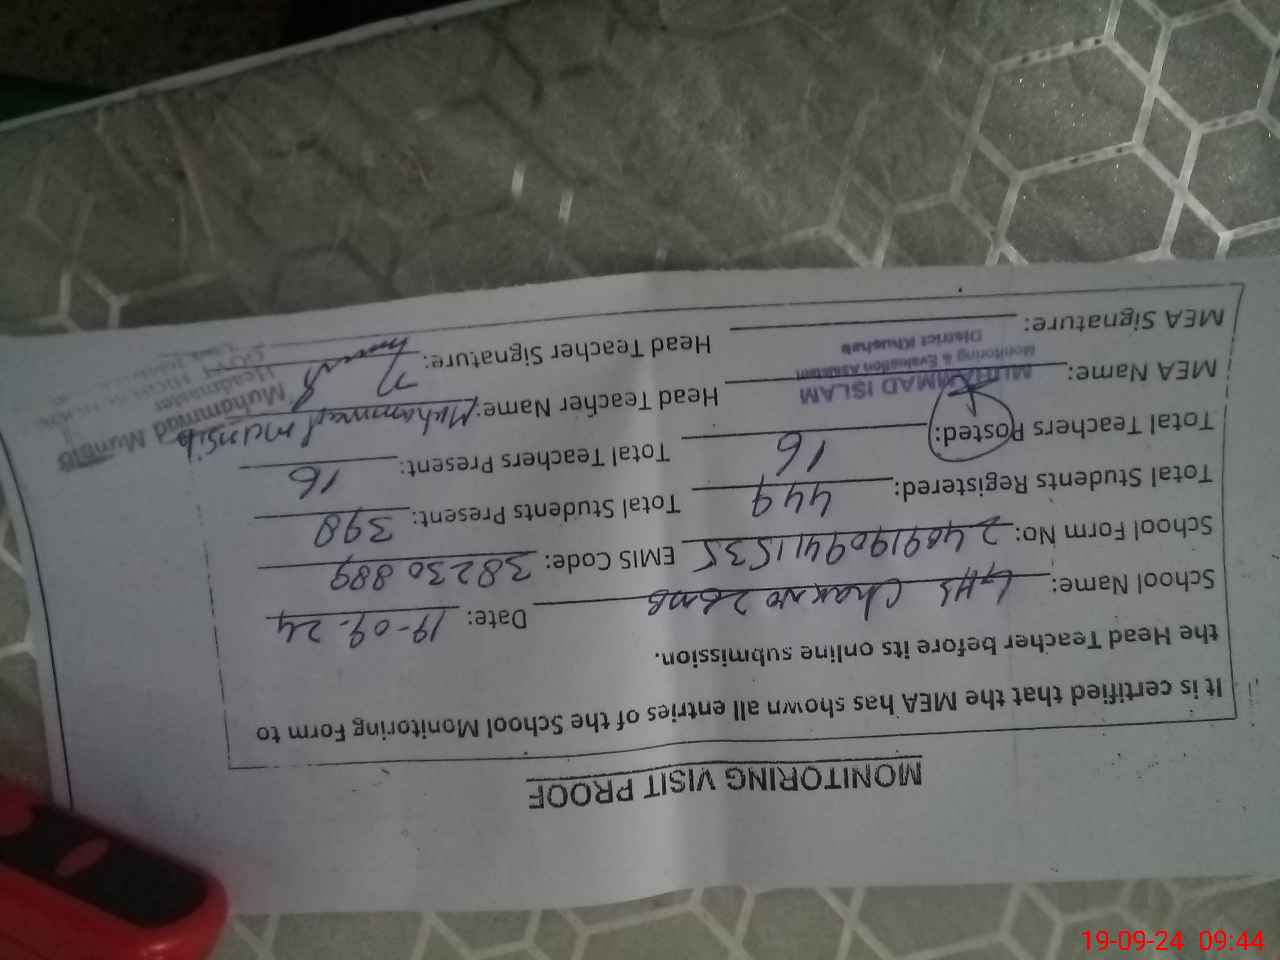 MONITORING VISIT PROOF
It is certified that the MEA has shown all entries of the School Monitoring Form to
the Head Teacher before its online submission.
School Name: GHS Chak no 26MB Date: 19-09-24
School Form No: 2409190941535 EMIS Code: 38230889
Total Students Registered: 449 Total Students Present: 398
Total Teachers Posted: 16 Total Teachers Present: 16
MEA Name: Head Teacher Name: Muhammad munsib
MUHAMMAD ISLAM
Monitoring & Evaluation Assistant
District Khushab
Muhammad Munsib
Headmaster
MEA Signature: Head Teacher Signature:
19-09-24 09:44